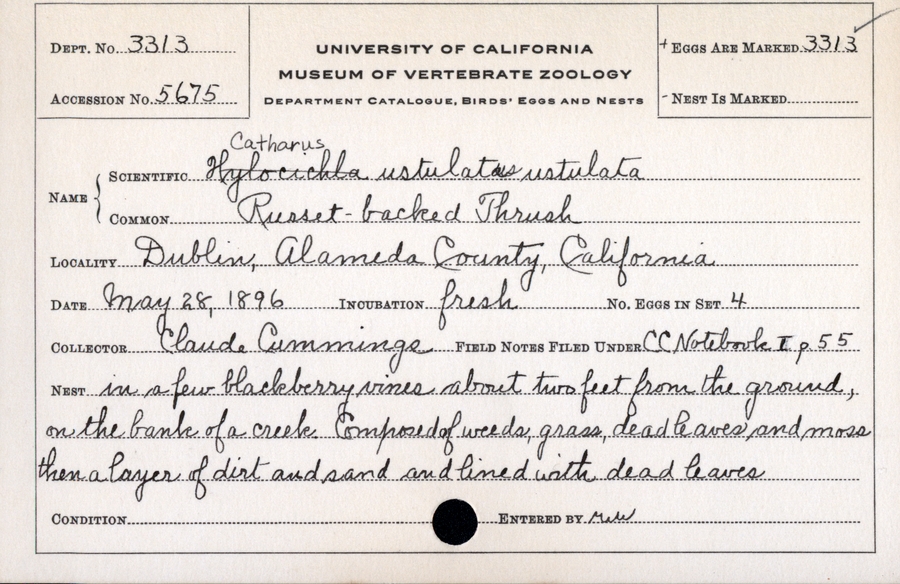 Dept. No. 3313
UNIVERSITY OF CALIFORNIA
+ Eggs Are Marked 3313
MUSEUM OF VERTEBRATE ZOOLOGY
Accession No. 5675
Department Catalogue, Birds' Eggs and Nests
- Nest Is Marked
Catharus
Name { Scientific Hylocichla ustulatus ustulata
Common Russet-backed Thrush
Locality Dublin, Alameda County, California
Date May 28, 1896 Incubation fresh No. Eggs in Set 4
Collector Claude Cummings Field Notes Filed Under CC Notebook II p. 55
Nest in a few blackberry vines about two feet from the ground,
on the bank of a creek. Composed of weeds, grass, dead leaves, and moss
then a layer of dirt and sand and lined with dead leaves
Condition Entered by